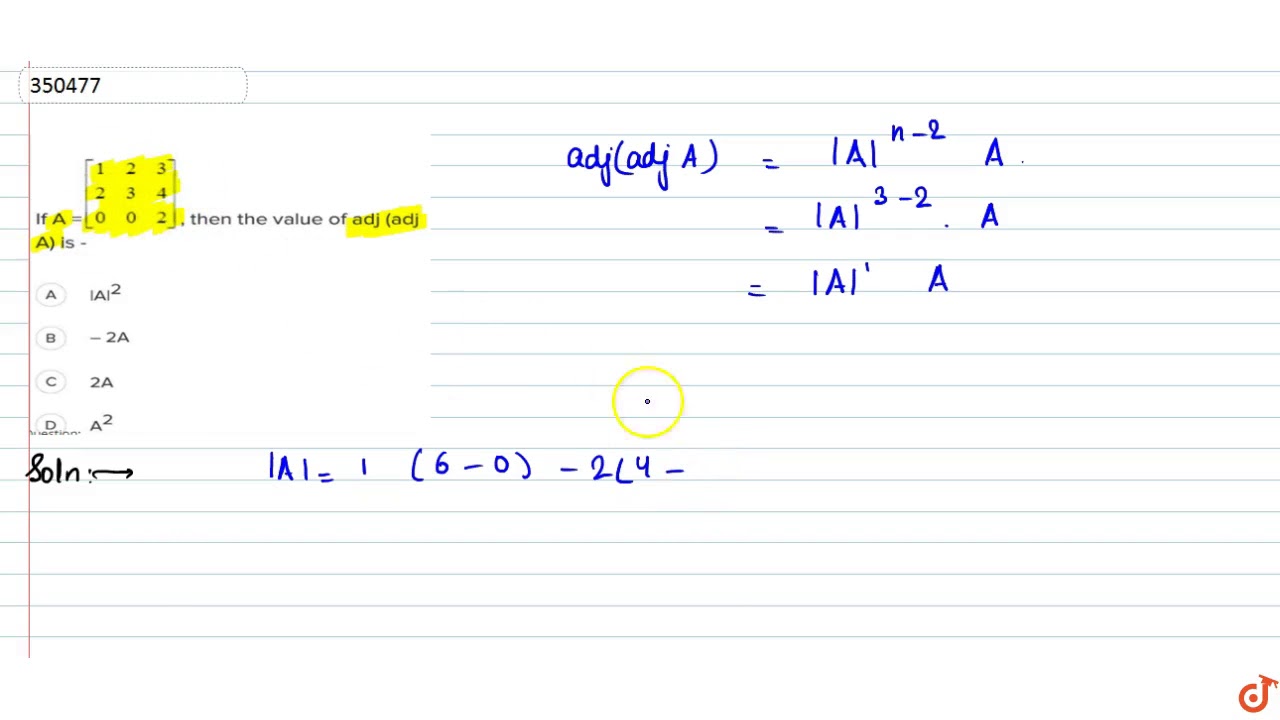 350477
1 2 3
2 3 4
If A = 0 0 2 , then the value of adj (adj
A) is -
A |A|2
B – 2A
C 2A
D A2
adj(adj A) = |A| n-2 A .
= |A| 3-2 . A
= |A| 1 A
Soln :→ |A| = 1 (6 - 0) - 2(4 -